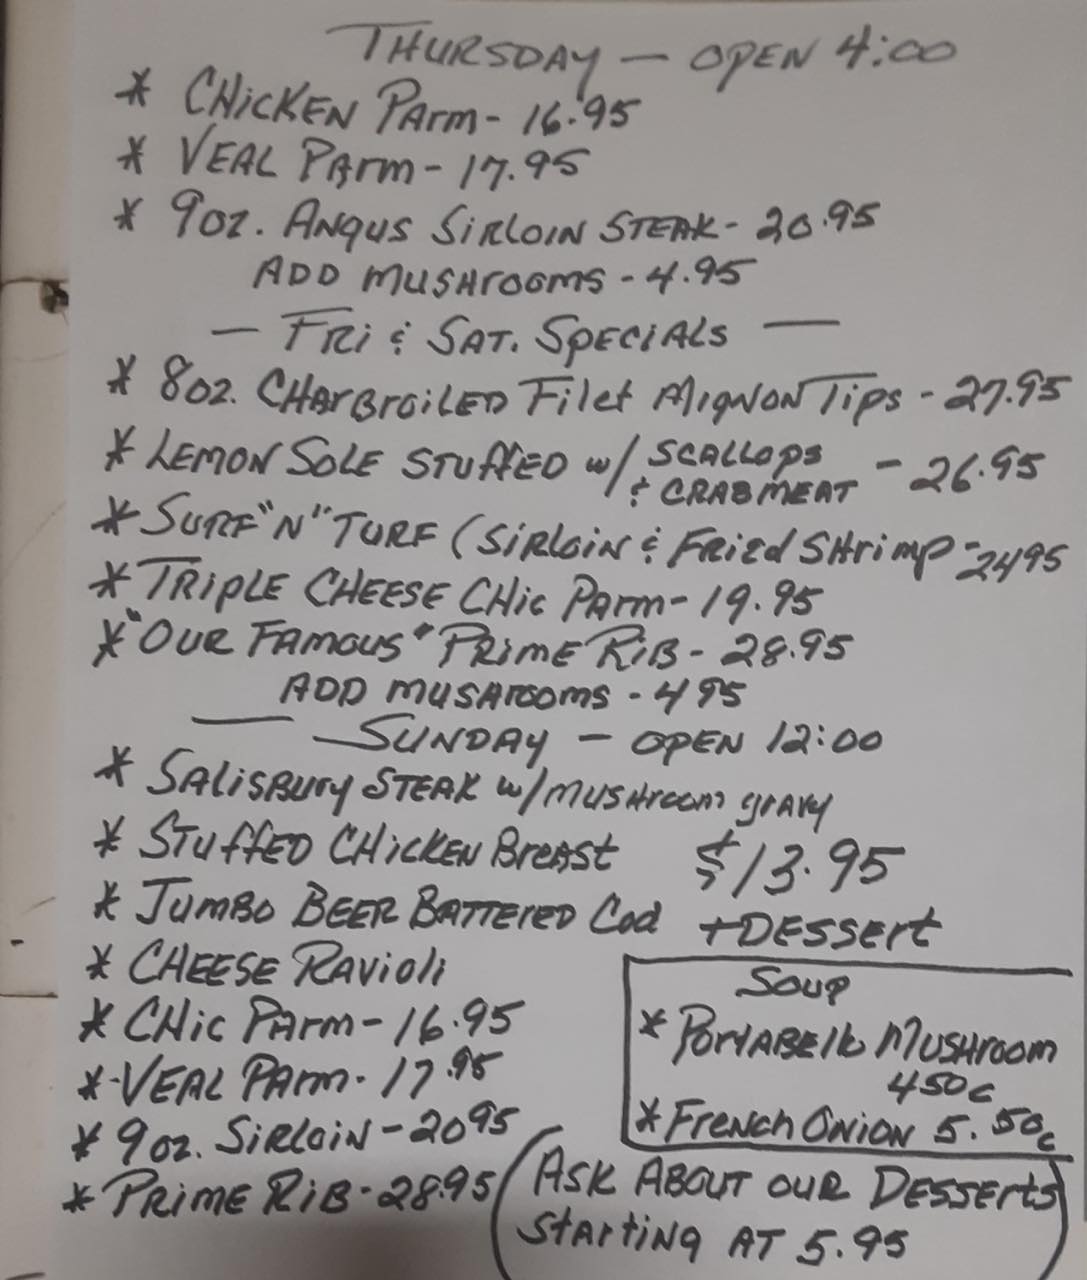 THURSDAY — OPEN 4:00
* CHICKEN PARM - 16.95
* VEAL PARM - 17.95
* 9oz. ANGUS SIRLOIN STEAK - 20.95
ADD MUSHROOMS - 4.95
— FRI & SAT. SPECIALS —
* 8oz. CHARBROILED Filet MIGNON TIPS - 27.95
* LEMON SOLE STUFFED w/ SCALLOPS
& CRABMEAT - 26.95
* SURF "N" TURF (SIRLOIN & FRIED SHRIMP - 2495
* TRIPLE CHEESE CHIC PARM - 19.95
* "OUR FAMOUS" PRIME RIB - 28.95
ADD MUSHROOMS - 495
— SUNDAY — OPEN 12:00
* SALISBURY STEAK w/ MUSHROOM gravy
* STUFFED CHICKEN BREAST
* JUMBO BEER BATTERED Cod
* CHEESE RAVIOLI
$13.95
+ DESSERT
* CHIC PARM - 16.95
* - VEAL PARM - 17.95
* 9oz. SIRLOIN - 2095
* PRIME RIB - 28.95
SOUP
* PORTABELLO MUSHROOM
450c
* FRENCH ONION 5.50c
ASK ABOUT OUR DESSERTS
STARTING AT 5.95